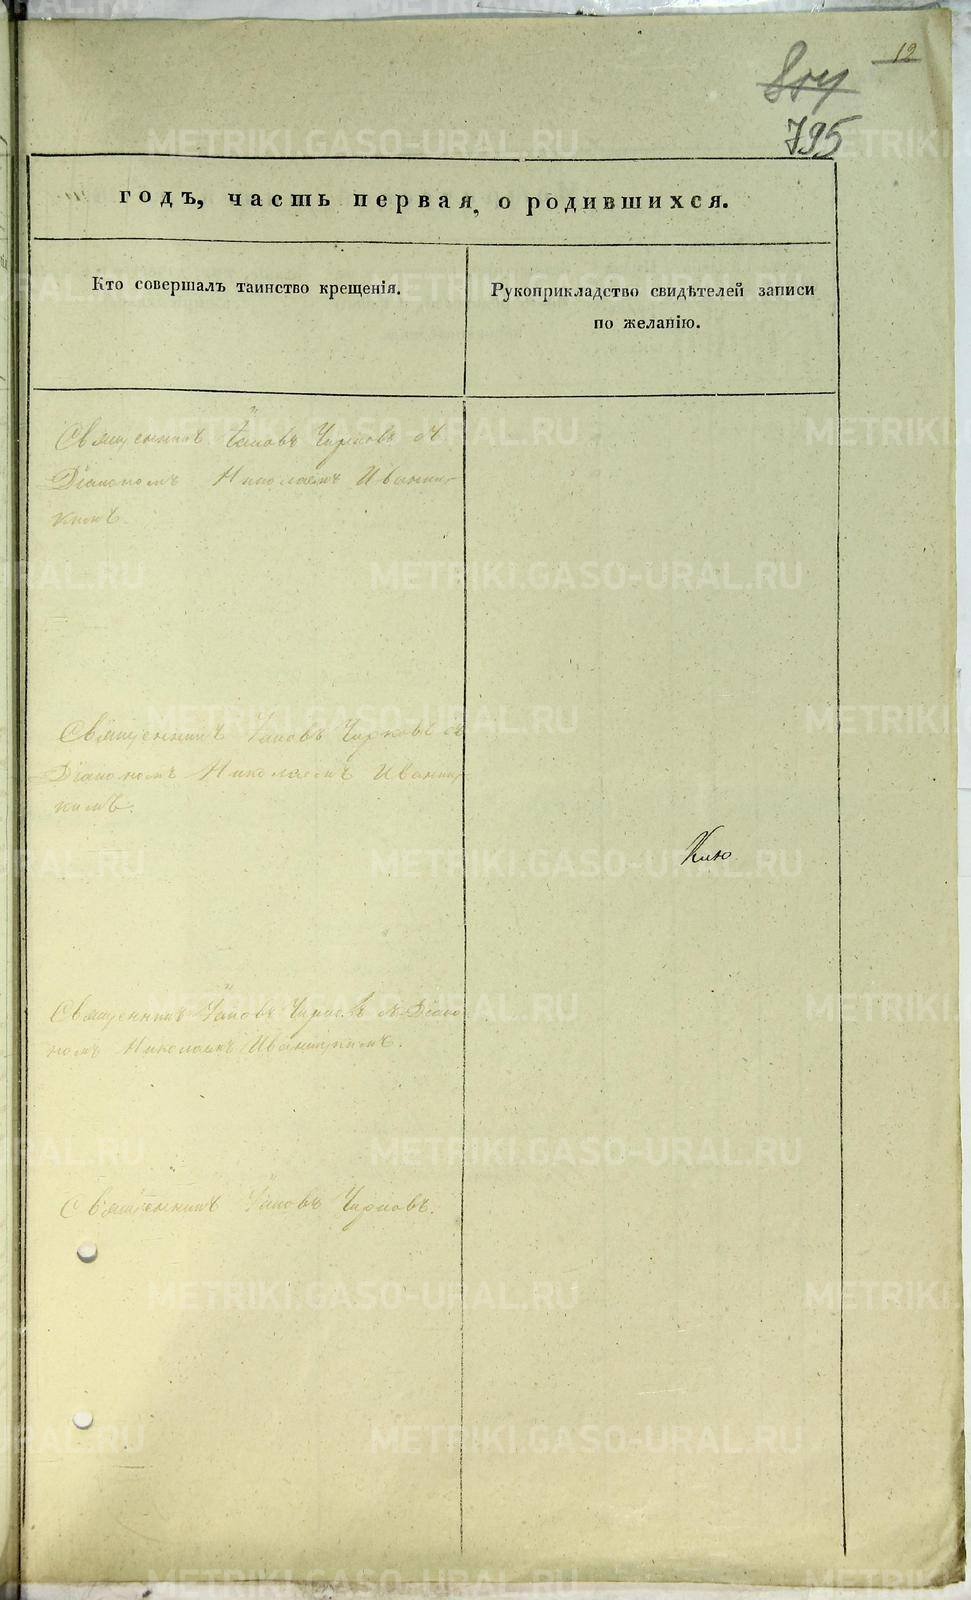 12
795
годъ, часть первая, о родившихся.
Кто совершалъ таинство крещенія.
Рукоприкладство свидѣтелей записи
по желанію.
Священникъ Іаковъ Чирковъ съ
Діакономъ Николаемъ Иваниц-
кимъ.
Священникъ Іаковъ Чирковъ съ
Діакономъ Николаемъ Иваниц-
кимъ.
Священникъ Іаковъ Чирковъ съ Діако
номъ Николаемъ Иваницкимъ.
Священникъ Іаковъ Чирковъ.
METRIKI.GASO-URAL.RU